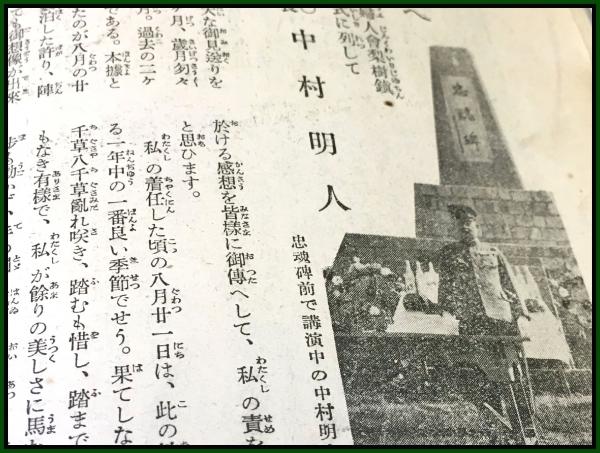 忠魂碑
忠魂碑前で講演中の中村明
中村明人
婦人會梨樹鎮
式に列して
大な御見送りを
ヶ月、歲月匆々
月。過去の二ヶ
である。本據と
たのが八月の廿
泊した許り、陣
ても御想像が出來
於ける感想を皆樣に御傳へして、私の責を
と思ひます。
私の着任した頃の八月廿一日は、此の
る一年中の一番良い季節でせう。果てしな
千草八千草亂れ咲き、踏むも惜し、踏まで
もなき有樣で、私が餘りの美しさに馬